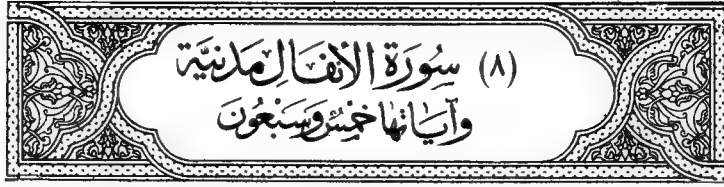 (٨) سُورَةُ الأَنْفَالِ مَدَنِيَّة
وَآيَاتُهَا خَمْسٌ وَسَبْعُونَ